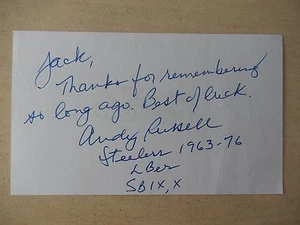 Jack,
Thanks for remembering
so long ago. Best of luck.
Andy Russell
Steelers 1963-76
LBer
SB IX, X